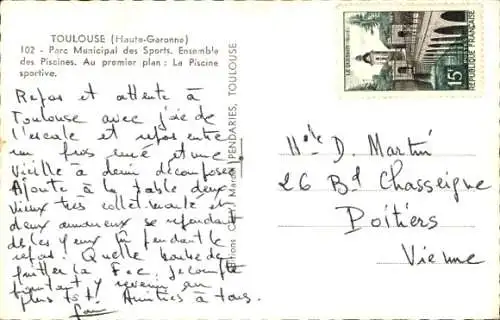 TOULOUSE (Haute-Garonne)
102 - Parc Municipal des Sports. Ensemble
des Piscines. Au premier plan : La Piscine
sportive.
Repos et attente à
Toulouse avec joie de
l'escale et repos entre
un gros et une
vieille à demi décomposée
Ajoute à la table deux
vieux très collet-monté et
deux amoureux se regardant
dans les yeux pendant le
repas. Quelle
quitter la Fac. Je compte
pourtant y revenir au
plus tôt. Amitiés à tous.
Editions PENDARIES, TOULOUSE
LE QUESNOY
15F
REPUBLIQUE FRANCAISE
D. Martin
26 Bd Chasseigne
Poitiers
Vienne